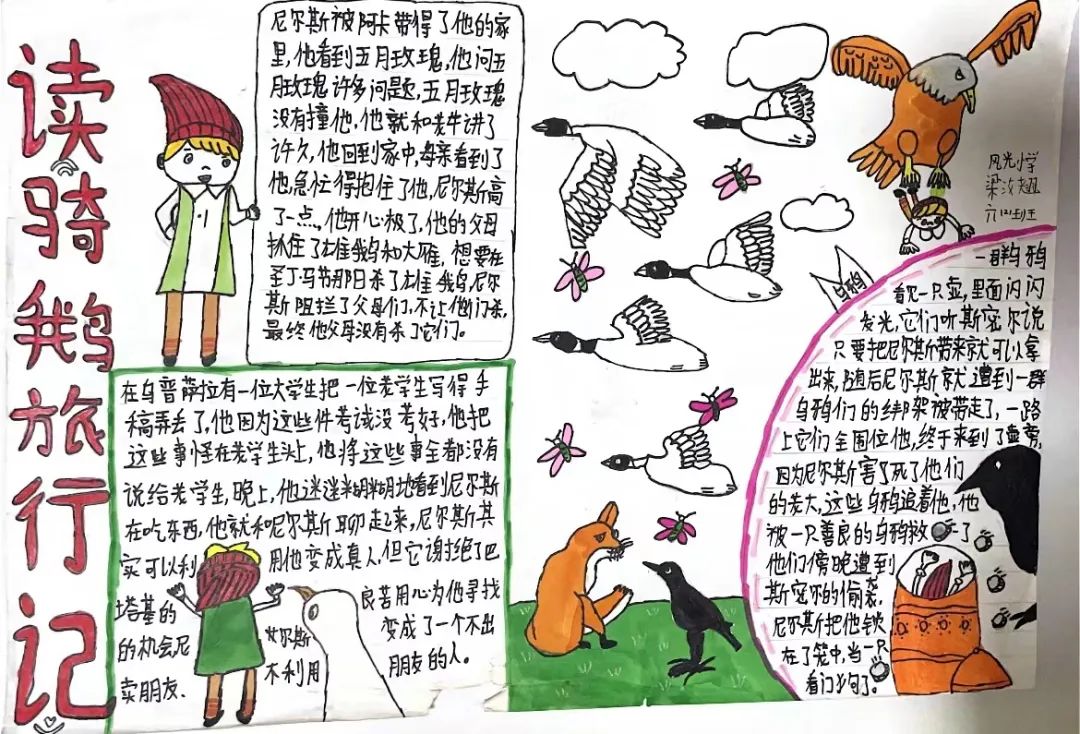 读骑鹅旅行记
尼尔斯被阿卡带得了他的家
里,他看到五月玫瑰,他问五
月玫瑰许多问题,五月玫瑰
没有撞他,他就和老牛讲了
许久,他回到家中,母亲看到了
他,急忙得抱住了他,尼尔斯高
了一点,他开心极了,他的父母
抓住了雄鹅和大雁,想要在
圣丁马节那日杀了雄鹅,尼尔
斯阻拦了父母们,不让他们杀,
最终他父母没有杀了它们。
在乌普萨拉有一位大学生把一位老学生写得手
稿弄丢了,他因为这些件考试没考好,他把
这些事怪在老学生头上,他将这些事全都没有
说给老学生,晚上,他迷迷糊糊地看到尼尔斯
在吃东西,他就和尼尔斯聊起来,尼尔斯其
实可以利用他变成真人,但它谢绝了巴
塔基的良苦用心为他寻找
的机会尼尔斯变成了一个不出
卖朋友、不利用朋友的人。
风光小学
六(2)班
乌鸦
一群乌鸦
看见一只壶,里面闪闪
发光,它们听斯密尔说
只要把尼尔斯带来就可以拿
出来,随后尼尔斯就遭到一群
乌鸦们的绑架被带走了,一路
上它们全围位他,终于来到了壶旁,
因为尼尔斯害了死了他们
的老大,这些乌鸦追着他,他
被一只善良的乌鸦救了
他们傍晚遭到
斯密尔的偷袭,
尼尔斯把他锁
在了笼中,当一只
看门狗了。